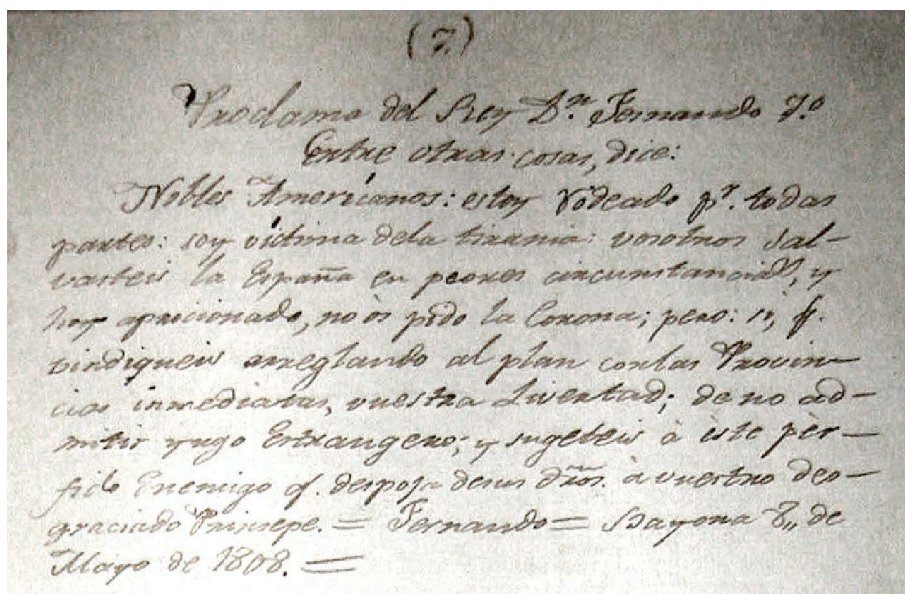 (7.)
Proclama del Rey D.n Fernando 7.o
Entre otras cosas, dice:
Nobles Américanos: estoy rodeado p.r todas
partes: soy víctima dela tirania: vosotros sal-
vasteis la España en peores circunstancias, y
hoy apricionado, no òs pido la Corona; pero: si, q.
vindiqueis arreglando al plan conlas Provin-
cias inmediatas, vuestra Livertad; de no ad-
mitir yugo Extrangero; y sugeteis à èste pèr-
fido Enemigo q. despoja desus dros. à vuestro des-
graciado Prinsepe. = Fernando = Bayona 8,, de
Mayo de 1808. =